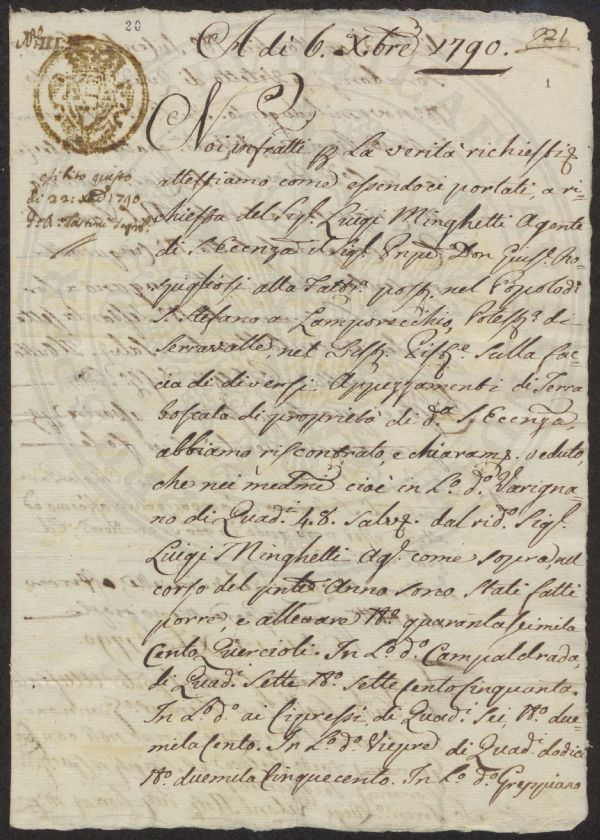 N.o III
20
A di 6. Xbre 1790.
221
1
esibito questo
di 22: 1790
Noi infratti p La verità richiesti
attestiamo come essendoci portati, a ri-
chiesta del Sig.r Luigi Minghetti Agente
di S. Ecenza il Sig.r Don Gius.e Ro-
spigliosi alla Fatt.a post.a nel Popolo di
S. Stefano a Lamporecchio, Potest.a di
Serravalle, nel sulla fac-
cia di diversi Appezzamenti di Terra
boscata di proprietà di d.a S. Ecenza,
abbiamo riscontrato, e chiaram.e veduto,
che nei medmi cioè in L.o d.o Varigna-
no di Quad.i 48. dal rid.o Sig.r
Luigi Minghetti Ag.e come sopra nel
corso del pnte Anno sono stati fatti
porre, e allevare N.o quaranta seimila
cento Quercioli. In L.o d.o Campaldrada,
di Quad.i Sette N.o Settecentocinquanta.
In L.o d.o ai Cipressi, di Quad.i Sei, N.o due-
mila cento. In L.o d.o Viepre di Quad.i dodici
N.o duemila cinquecento. In L.o d.o Greppiano